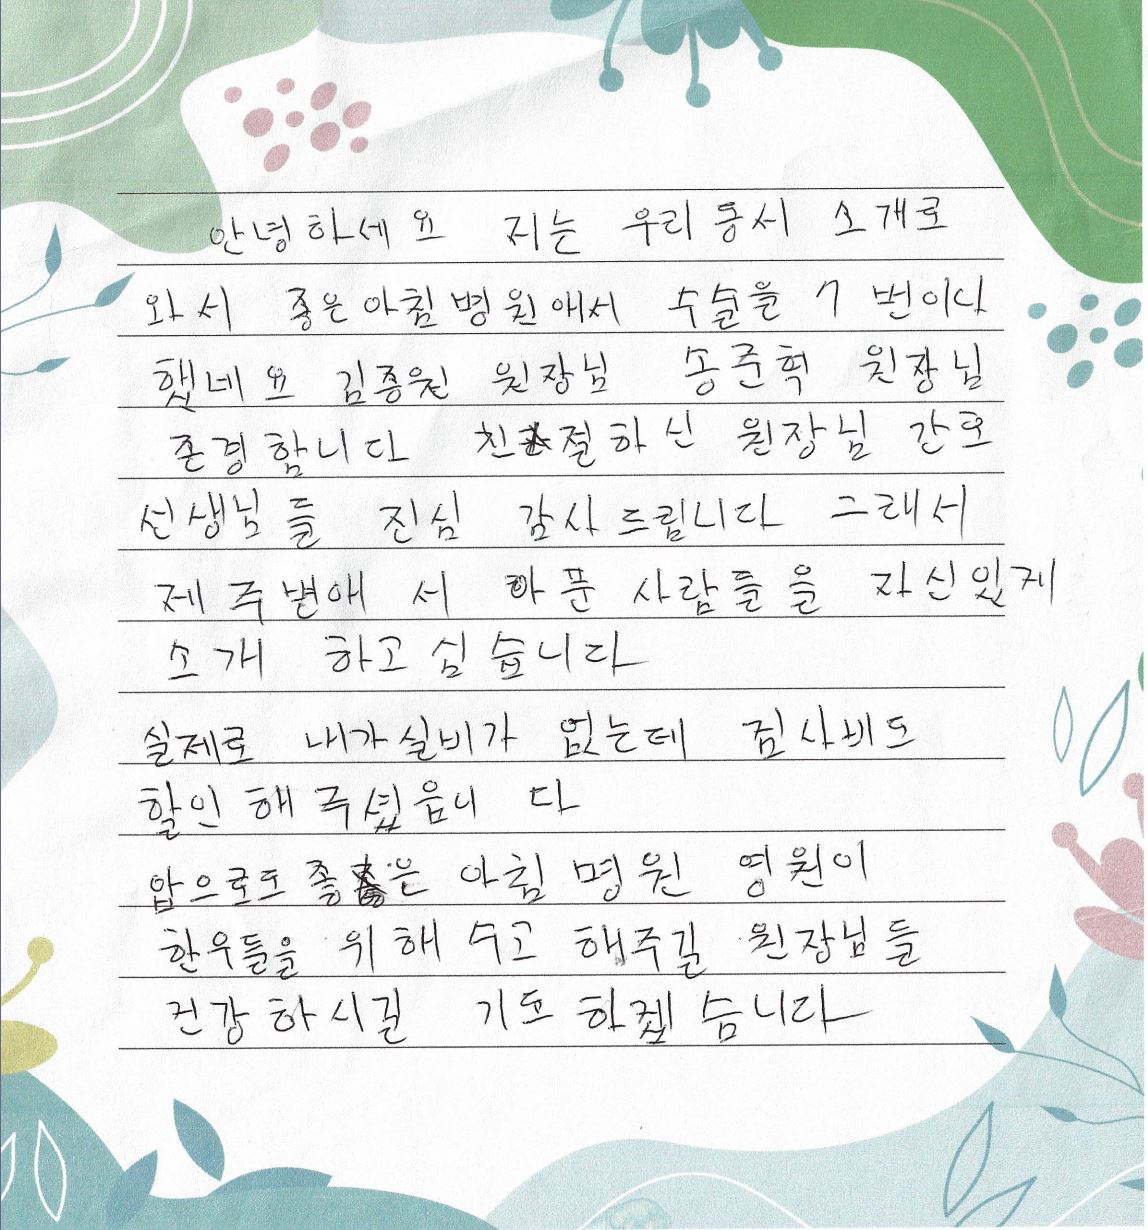 안녕하세요 저는 우리 동서 소개로
와서 좋은아침병원에서 수술을 7번이나
했네요 김종원 원장님 송준혁 원장님
존경합니다 친절하신 원장님 간호
선생님들 진심 감사드립니다 그래서
제 주변애서 아푼 사람들을 자신있게
소개 하고 싶습니다
실제로 내가 실비가 없는데 검사비도
할인해 주셨읍니다
앞으로도 좋은 아침 병원 영원이
한우들을 위해 수고 해주길 원장님들
건강하시길 기도하겠습니다